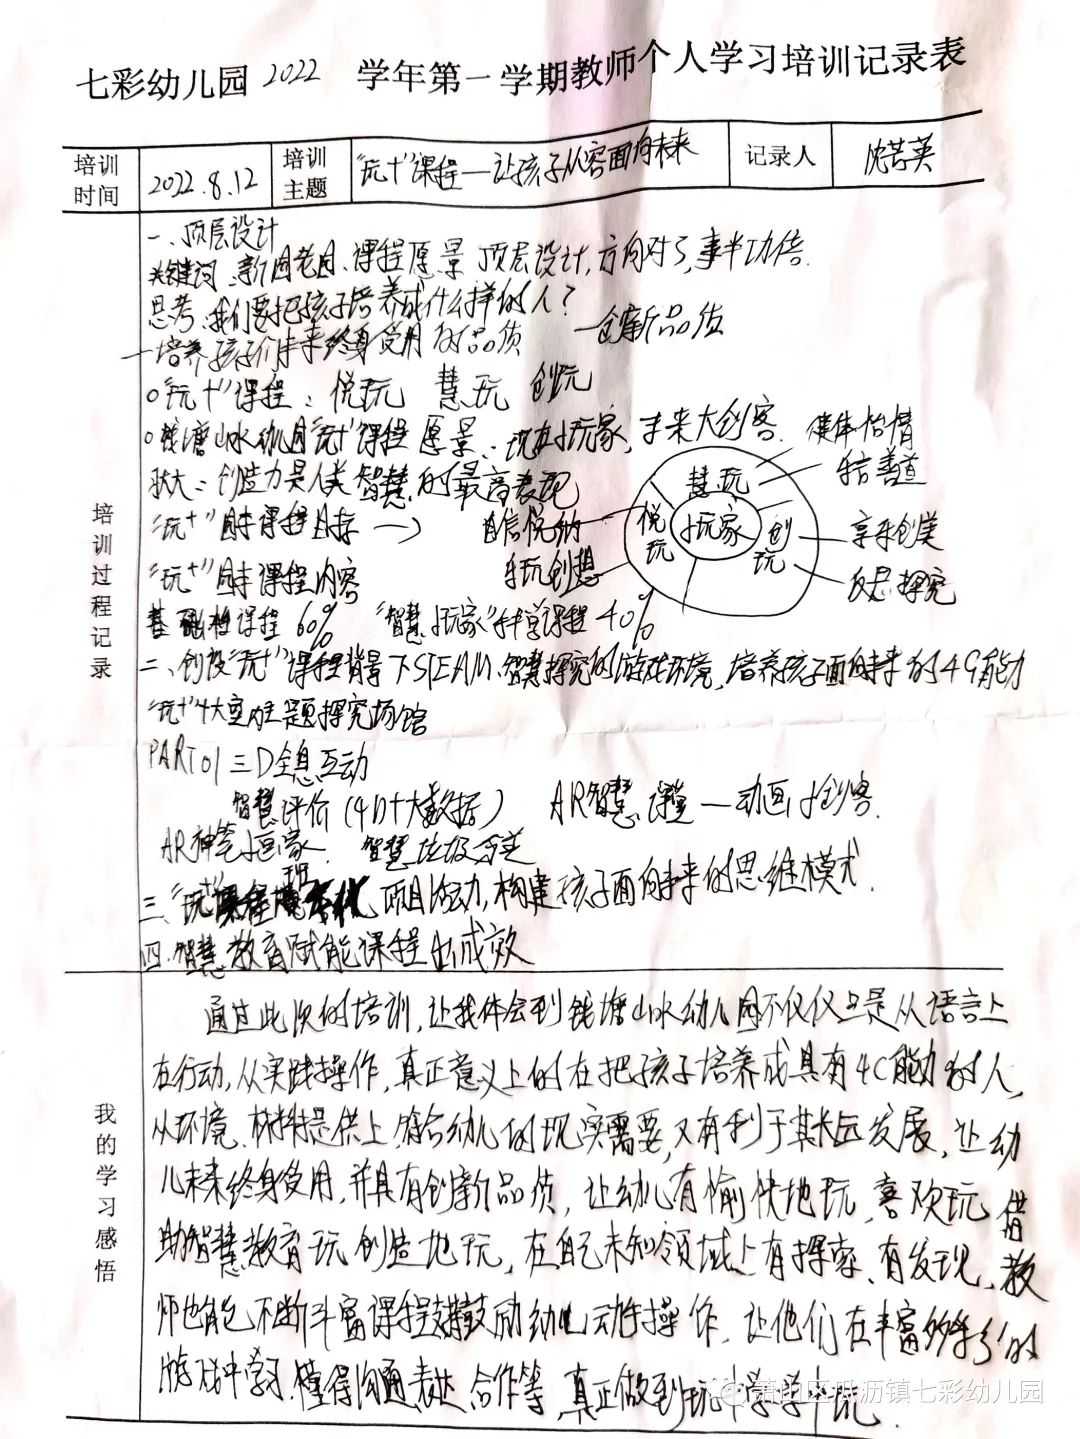 七彩幼儿园2022 学年第一学期教师个人学习培训记录表
培训时间 2022.8.12 培训主题 “玩+”课程—让孩子从容面向未来 记录人 沈芳英
培训过程记录
一、顶层设计
关键词、新园老园、课程愿景 顶层设计,方向对了,事半功倍.
思考、我们要把孩子培养成什么样的人?
一培养孩子们未来终身受用的品质 一创新品质
“玩+”课程: 悦玩 慧玩 创玩
钱塘山水幼儿园“玩+”课程愿景、现在小玩家,未来大创客.
健体怡情
状大:创造力是人类智慧的最高表现
慧玩
善道
“玩+”园本课程目标 → 自信悦纳
悦玩
小玩家
创玩
享乐创美
乐玩创想
“玩+”园本课程内容
反思探究
基础性课程60% “智慧小玩家”课程40%
二、创设“玩+”课程背景下STEAM、智慧探究的游戏环境,培养孩子面向未来的4C能力
“玩+”4大主题探究场馆
PART01 三D全息互动
智慧评价(4D+大数据) AR智慧课堂—动画小创客.
AR神笔小画家. 智慧垃圾分类
三、“玩+”课程 项目活动,构建孩子面向未来的思维模式.
四.智慧教育赋能课程出成效
我的学习感悟
通过此次的培训,让我体会到钱塘山水幼儿园不仅仅只是从语言上
在行动,从实践操作,真正意义上的在把孩子培养成具有4C能力的人,
从环境、材料提供上,符合幼儿的现实需要,又有利于其长远发展,让幼
儿未来终身受用,并具有创新品质,让幼儿有愉快地玩,喜欢玩,借
助智慧教育玩创造地玩,在自己未知领域上有探索、有发现,教
师也能不断丰富课程鼓励幼儿动手操作,让他们在丰富多彩的
游戏中学习.懂得沟通表达、合作等,真正做到玩中学学中玩.
萧山区瓜沥镇七彩幼儿园